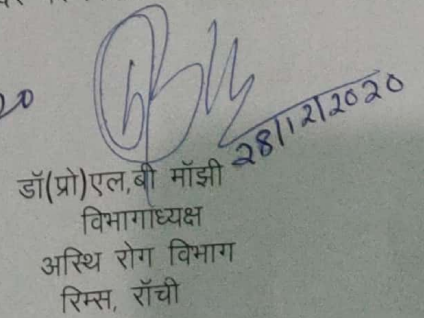 20
28/12/2020
डॉ(प्रो)एल,बी मॉझी
विभागाध्यक्ष
अस्थि रोग विभाग
रिम्स, रॉची